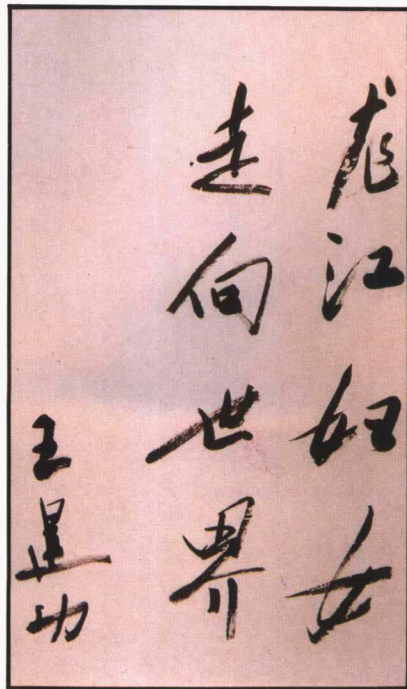 龙江妇女
走向世界
王建功